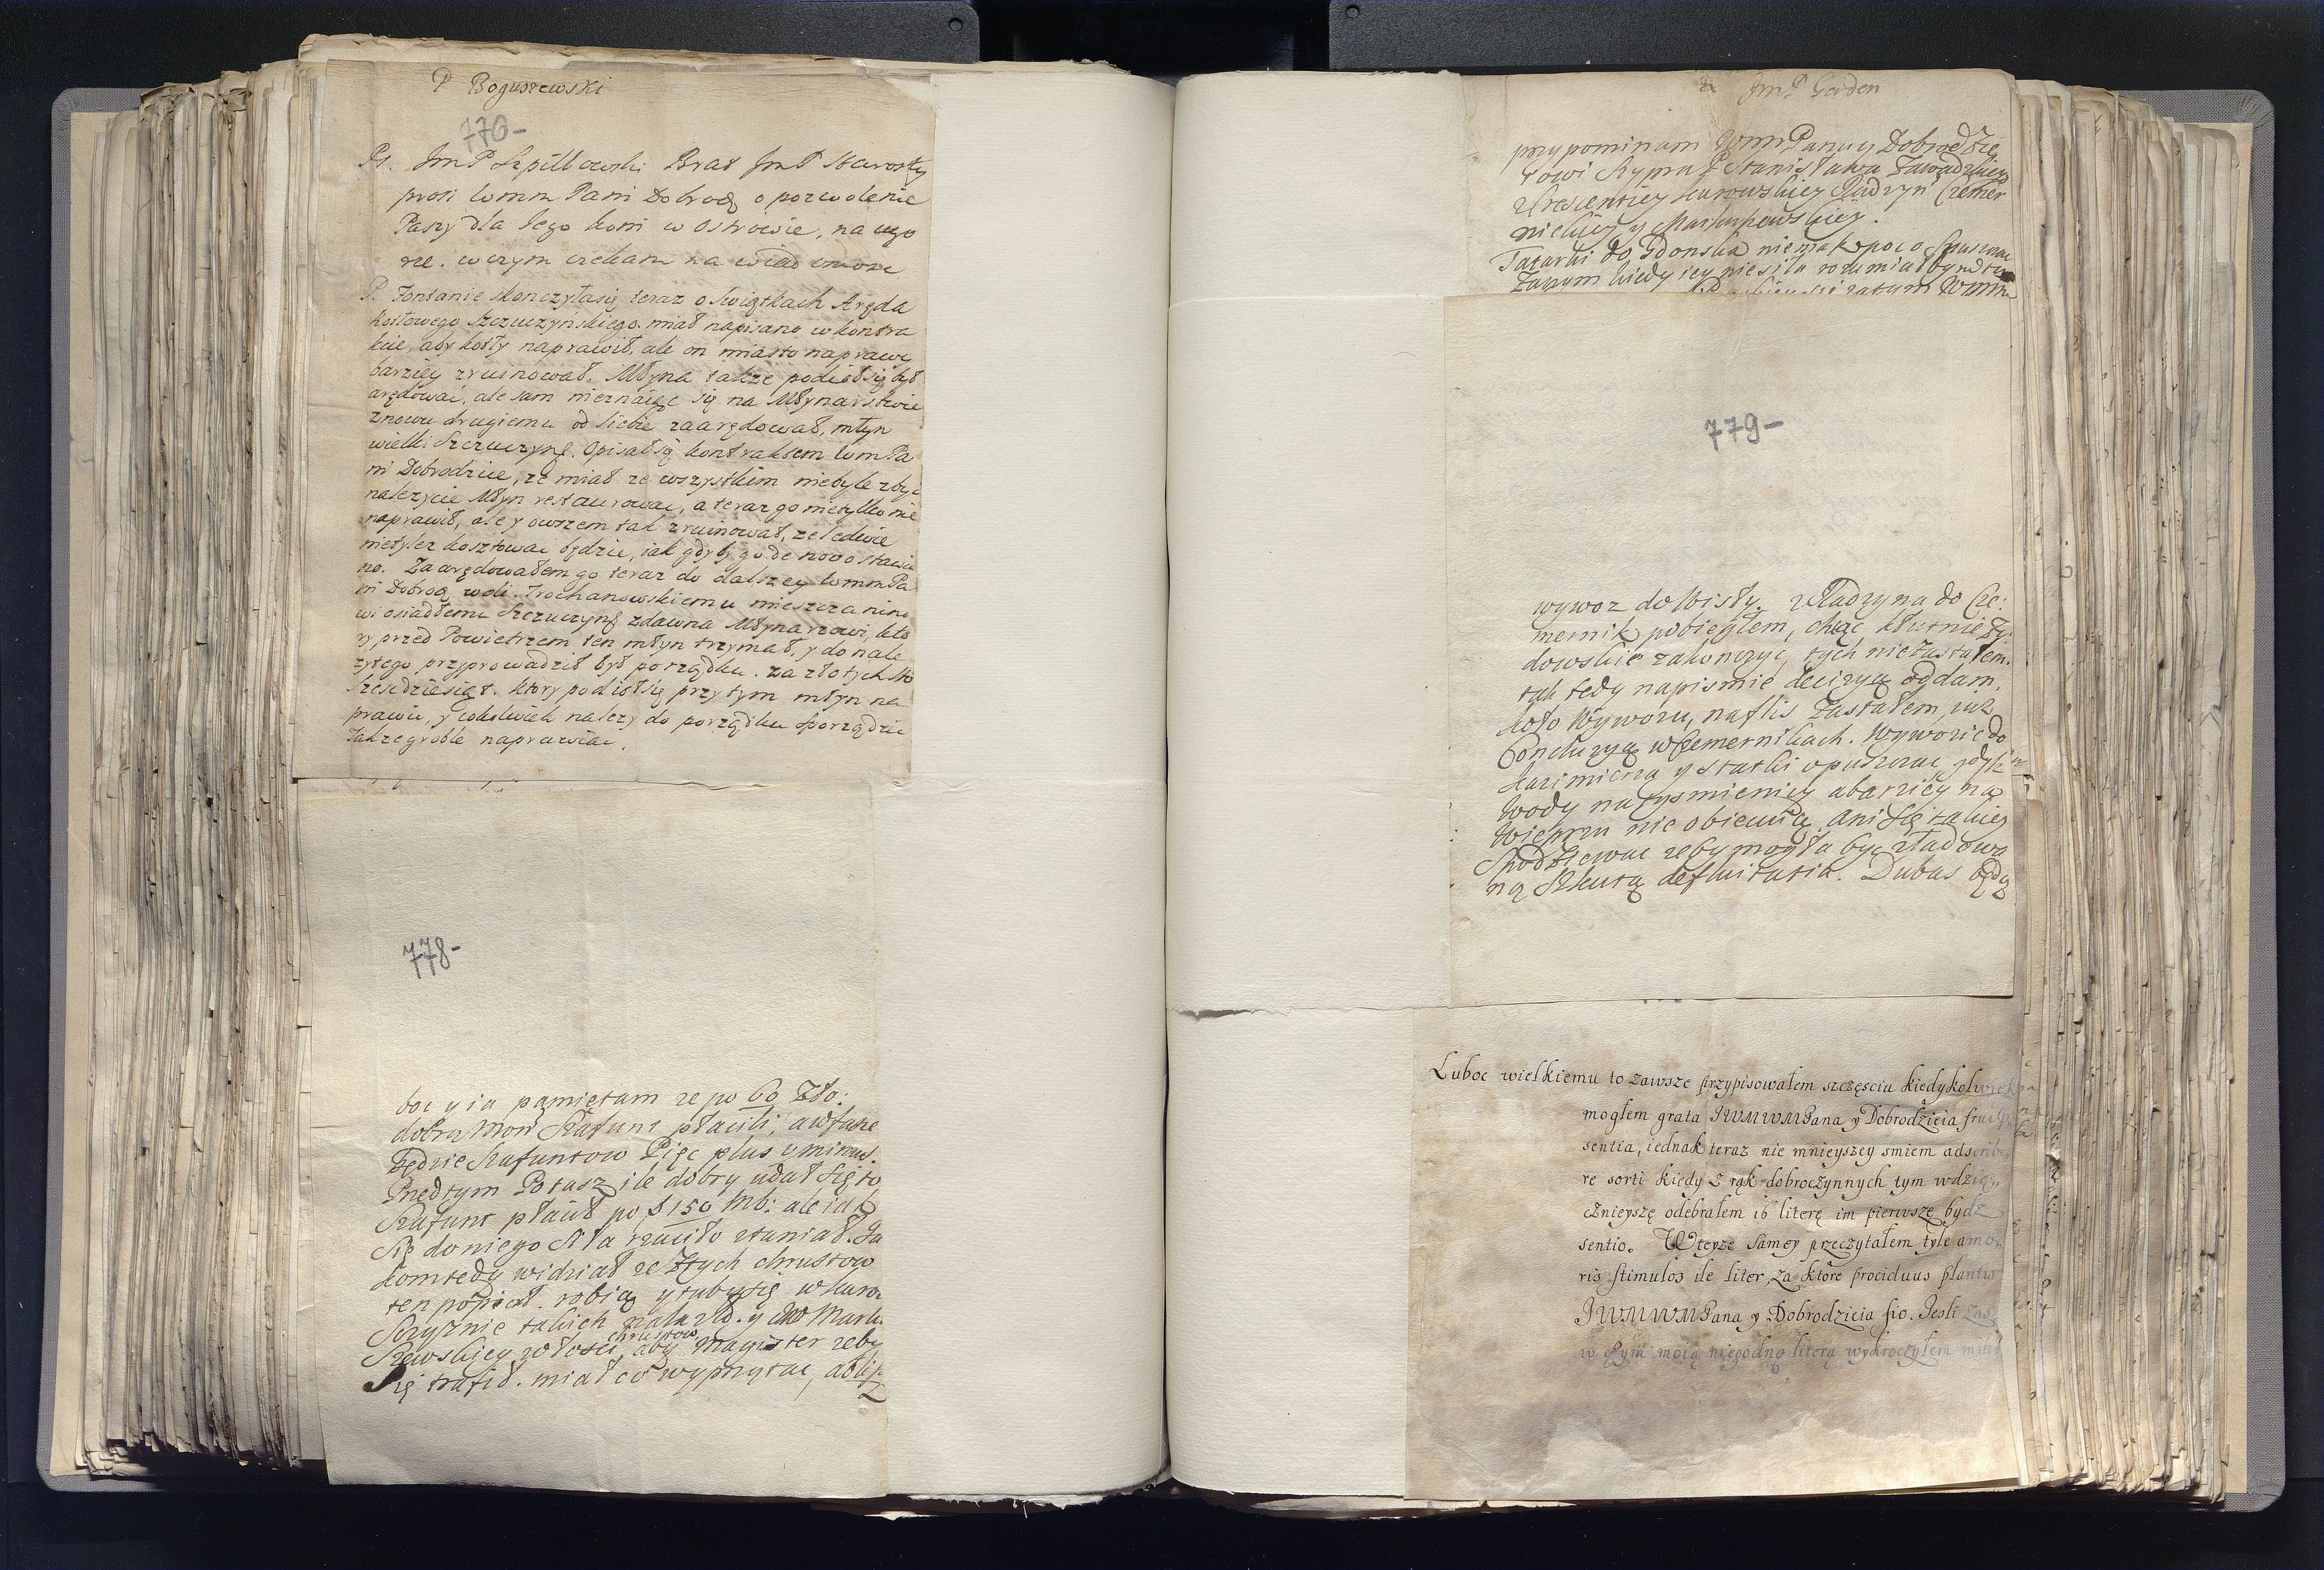 P Boguszewski
776-
Ps. Jm P Szpilkowski Brat Jm P Starosty
prosi Wmm Pani Dobrodz o pozwolenie
Paszy dla Jego koni w Ostrowie, na czo
rze. w czym czekam na
P. Fontanie skonczyłasię teraz o Swiątkach Aręda
kotłowego Szczuczynskiego. miał napisano w kontra
kcie, aby kotły naprawił, ale on miasto naprawy
barziey zruinował. Młyna takze podiął się był
arędowac, ale sam nieznaiąc się na Młynarstwie
znowu drugiemu od siebie zaarędował, młyn
wielki Szczuczyns. Opisał się kontraktem Wm Pa
ni Dobrodzice, ze miał ze wszystkim niebyle zbyc
nalezycie Młyn restaurowac, a teraz go nietylko nie
naprawił, ale y owszem tak zruinował, ze ledwie
nietylez kosztowac będzie, iak gdyby go de novo stawia
no. Zaarędowałem go teraz do dalszey Wmm Pa
ni Dobrodz woli. Trochanowskiemu mieszczanino
wi osiadłemu Szczuczyns zdawna Młynarzowi, kto
ry przed Powietrzem ten młyn trzymał, y do nale
zytego przyprowadził był porządku. za złotych sto
szescdziesiąt. ktory podiął się przytym młyn na
prawic, y cokolwiek nalezy do porządku sporządzic
Takze groble naprawiac.
778-
boc y ia pamiętam ze po 60 Zło:
dobra mon Szafunt płacili, a
Będzie Szafuntow Pięc plus y minus.
Przedtym Potasz ile dobry udał się to
Szafunt płacił po f 150 Mb: ale iak
się do niego siła rzuciło staniał. Ja
komtedy widział ze Ztych chrustow
ten popioł. robią y
takich nalazło. y
chrustow
aby Magister zeby
się trafił. miał co wyprzątac,
Jm P Gordon
przypominam Wmm Panu y Dobrodzie
iowi Stanisława Zawadzkiego
Kurowskiey Radzyn Czemer
nickiey y Markuszewskiey.
Tatarki do Gdanska niemasz poco Spuszczac
779-
wywoz do Wisły. z Radzyna do Cze:
mernik pobiegłem, chcąc kłutnie Zy
dowskie zakonczyc, tych niezastałem.
tak tedy napismie decizyą oddam.
koło Wywozu, na flis Zastałem, iuz
w Czemernikach. Wywozic do
Kazimierza y statki opuszczac, gdysz
Wody na Tysmienicy abarziey na
Wieprzu nie obiecuią, ani się takiey
Spodziewac zeby mogła byc zładowa
ną Szkutą defluitatia. Dubas będą
Luboc wielkiemu to zawsze przypisowałem szczęsciu kiedykolwiek
mogłem grata JWMWMPana y Dobrodzieia
sentia, iednak teraz nie mnieyszey smiem adscribe
re sorti kiedy z rąk dobroczynnych tym wdzię„
cznieyszę odebrałem iś literę im pierwszę bydz
sentio. W teyze samey przeczytałem tyle amo„
ris stimulos ile liter, za ktore prociduus plantis
JWMWMPana y Dobrodzieia fio. Jesli zas
w czym moią niegodną literą wykroczyłem